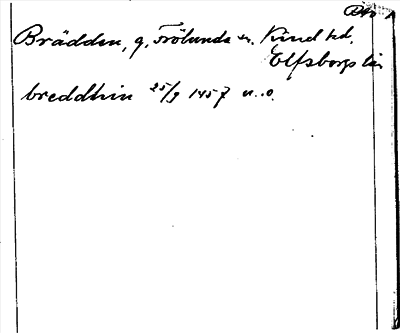 Brädden, g, Frölunda sn. Kind hd.
Elfsborgs län
breddhin 25/9 1457 n. o.